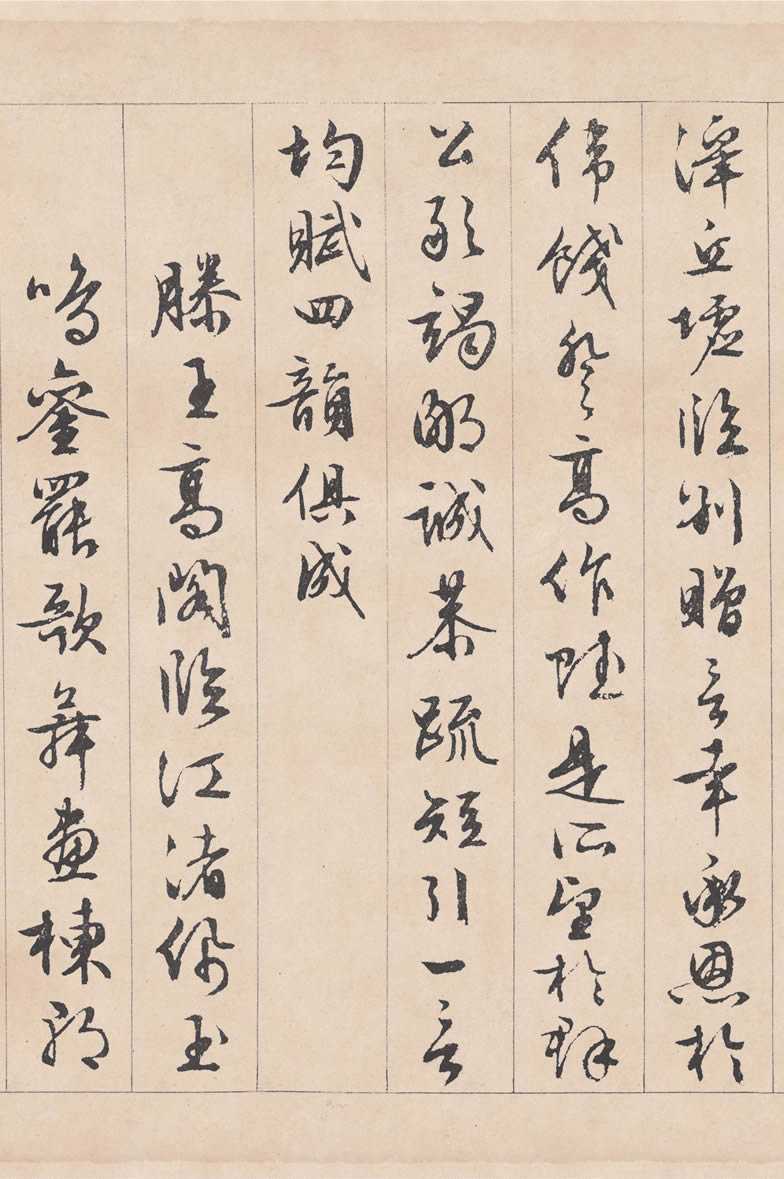 澤丘墟臨別贈言幸承恩於
偉餞登高作賦是所望於群
公敢竭鄙誠恭疏短引一言
均賦四韻俱成
滕王高閣臨江渚佩玉
鳴鑾罷歌舞畫棟朝